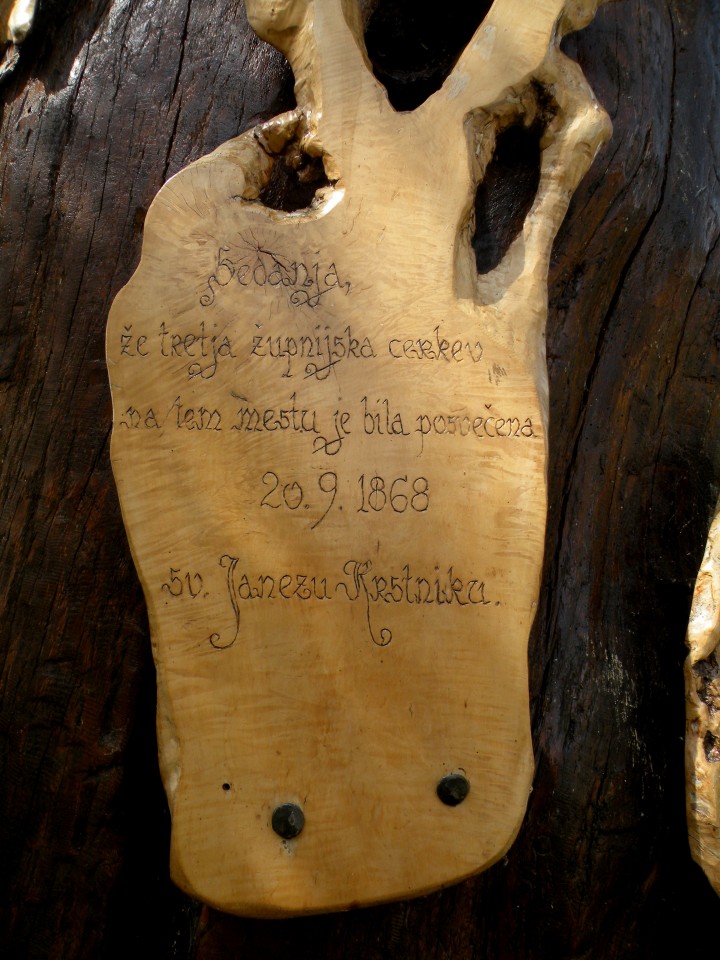 Sedanja,
že tretja župnijska cerkev
na tem mestu je bila posvečena
20.9.1868
sv. Janezu Krstniku.